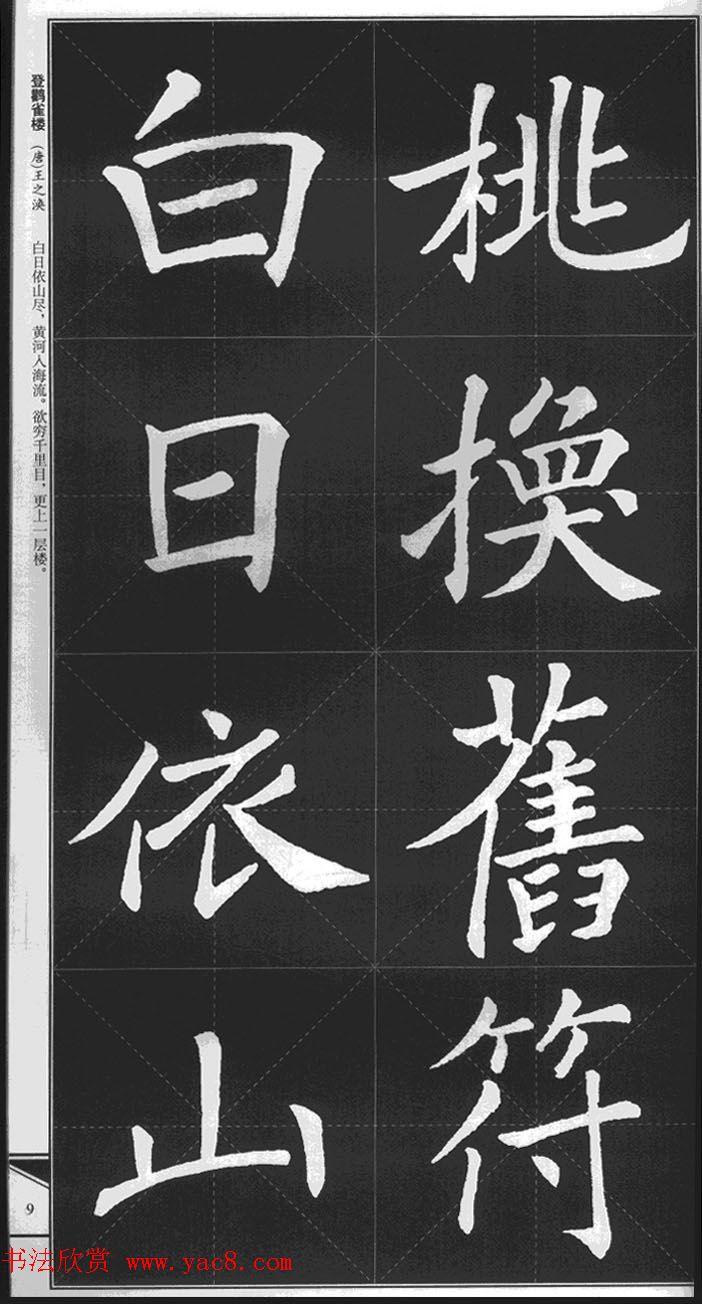 桃換舊符
白日依山
登鹳雀楼 (唐)王之涣 白日依山尽，黄河入海流。欲穷千里目，更上一层楼。
9
书法欣赏 www.yac8.com